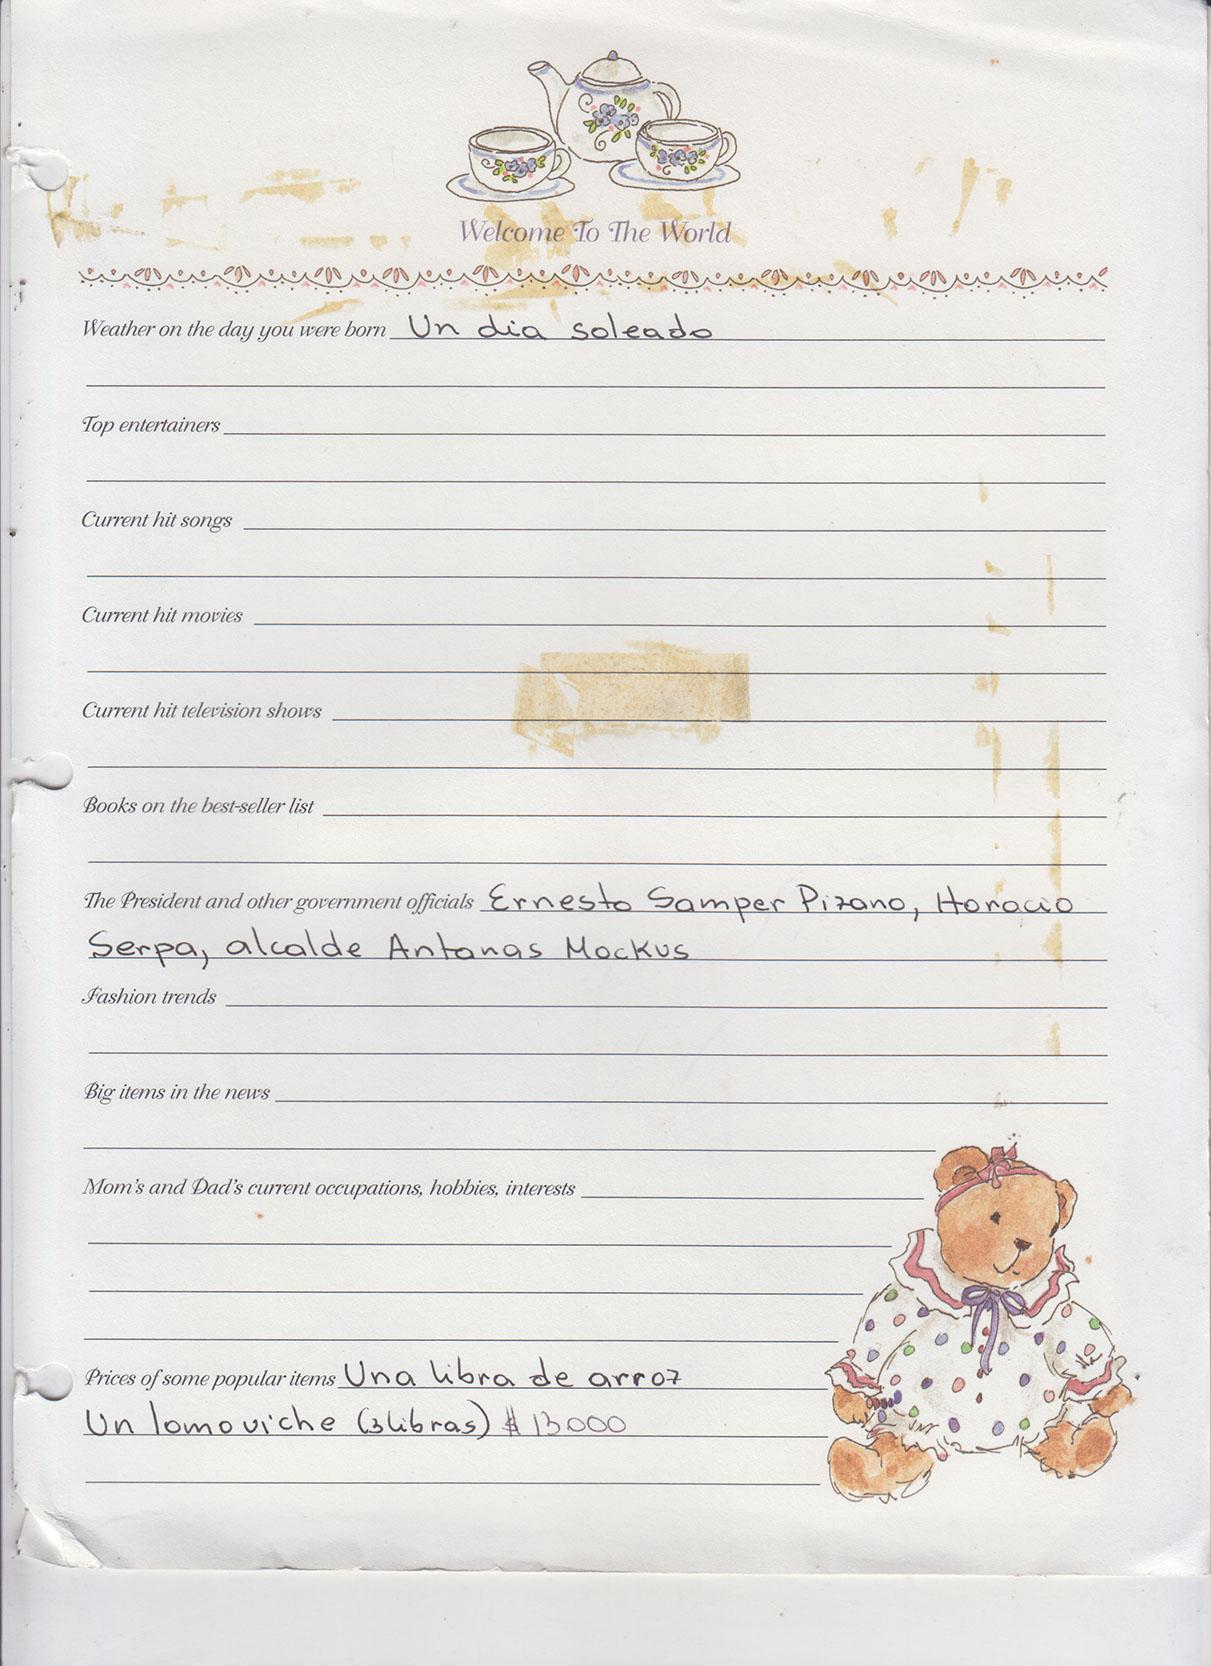 Welcome To The World
Weather on the day you were born Un dia soleado
Top entertainers
Current hit songs
Current hit movies
Current hit television shows
Books on the best-seller list
The President and other government officials Ernesto Samper Pizano, Horacio
Serpa, alcalde Antanas Mockus
Fashion trends
Big items in the news
Mom's and Dad's current occupations, hobbies, interests
Prices of some popular items Una libra de arroz
Un lomoviche (3 libras) $ 13.000